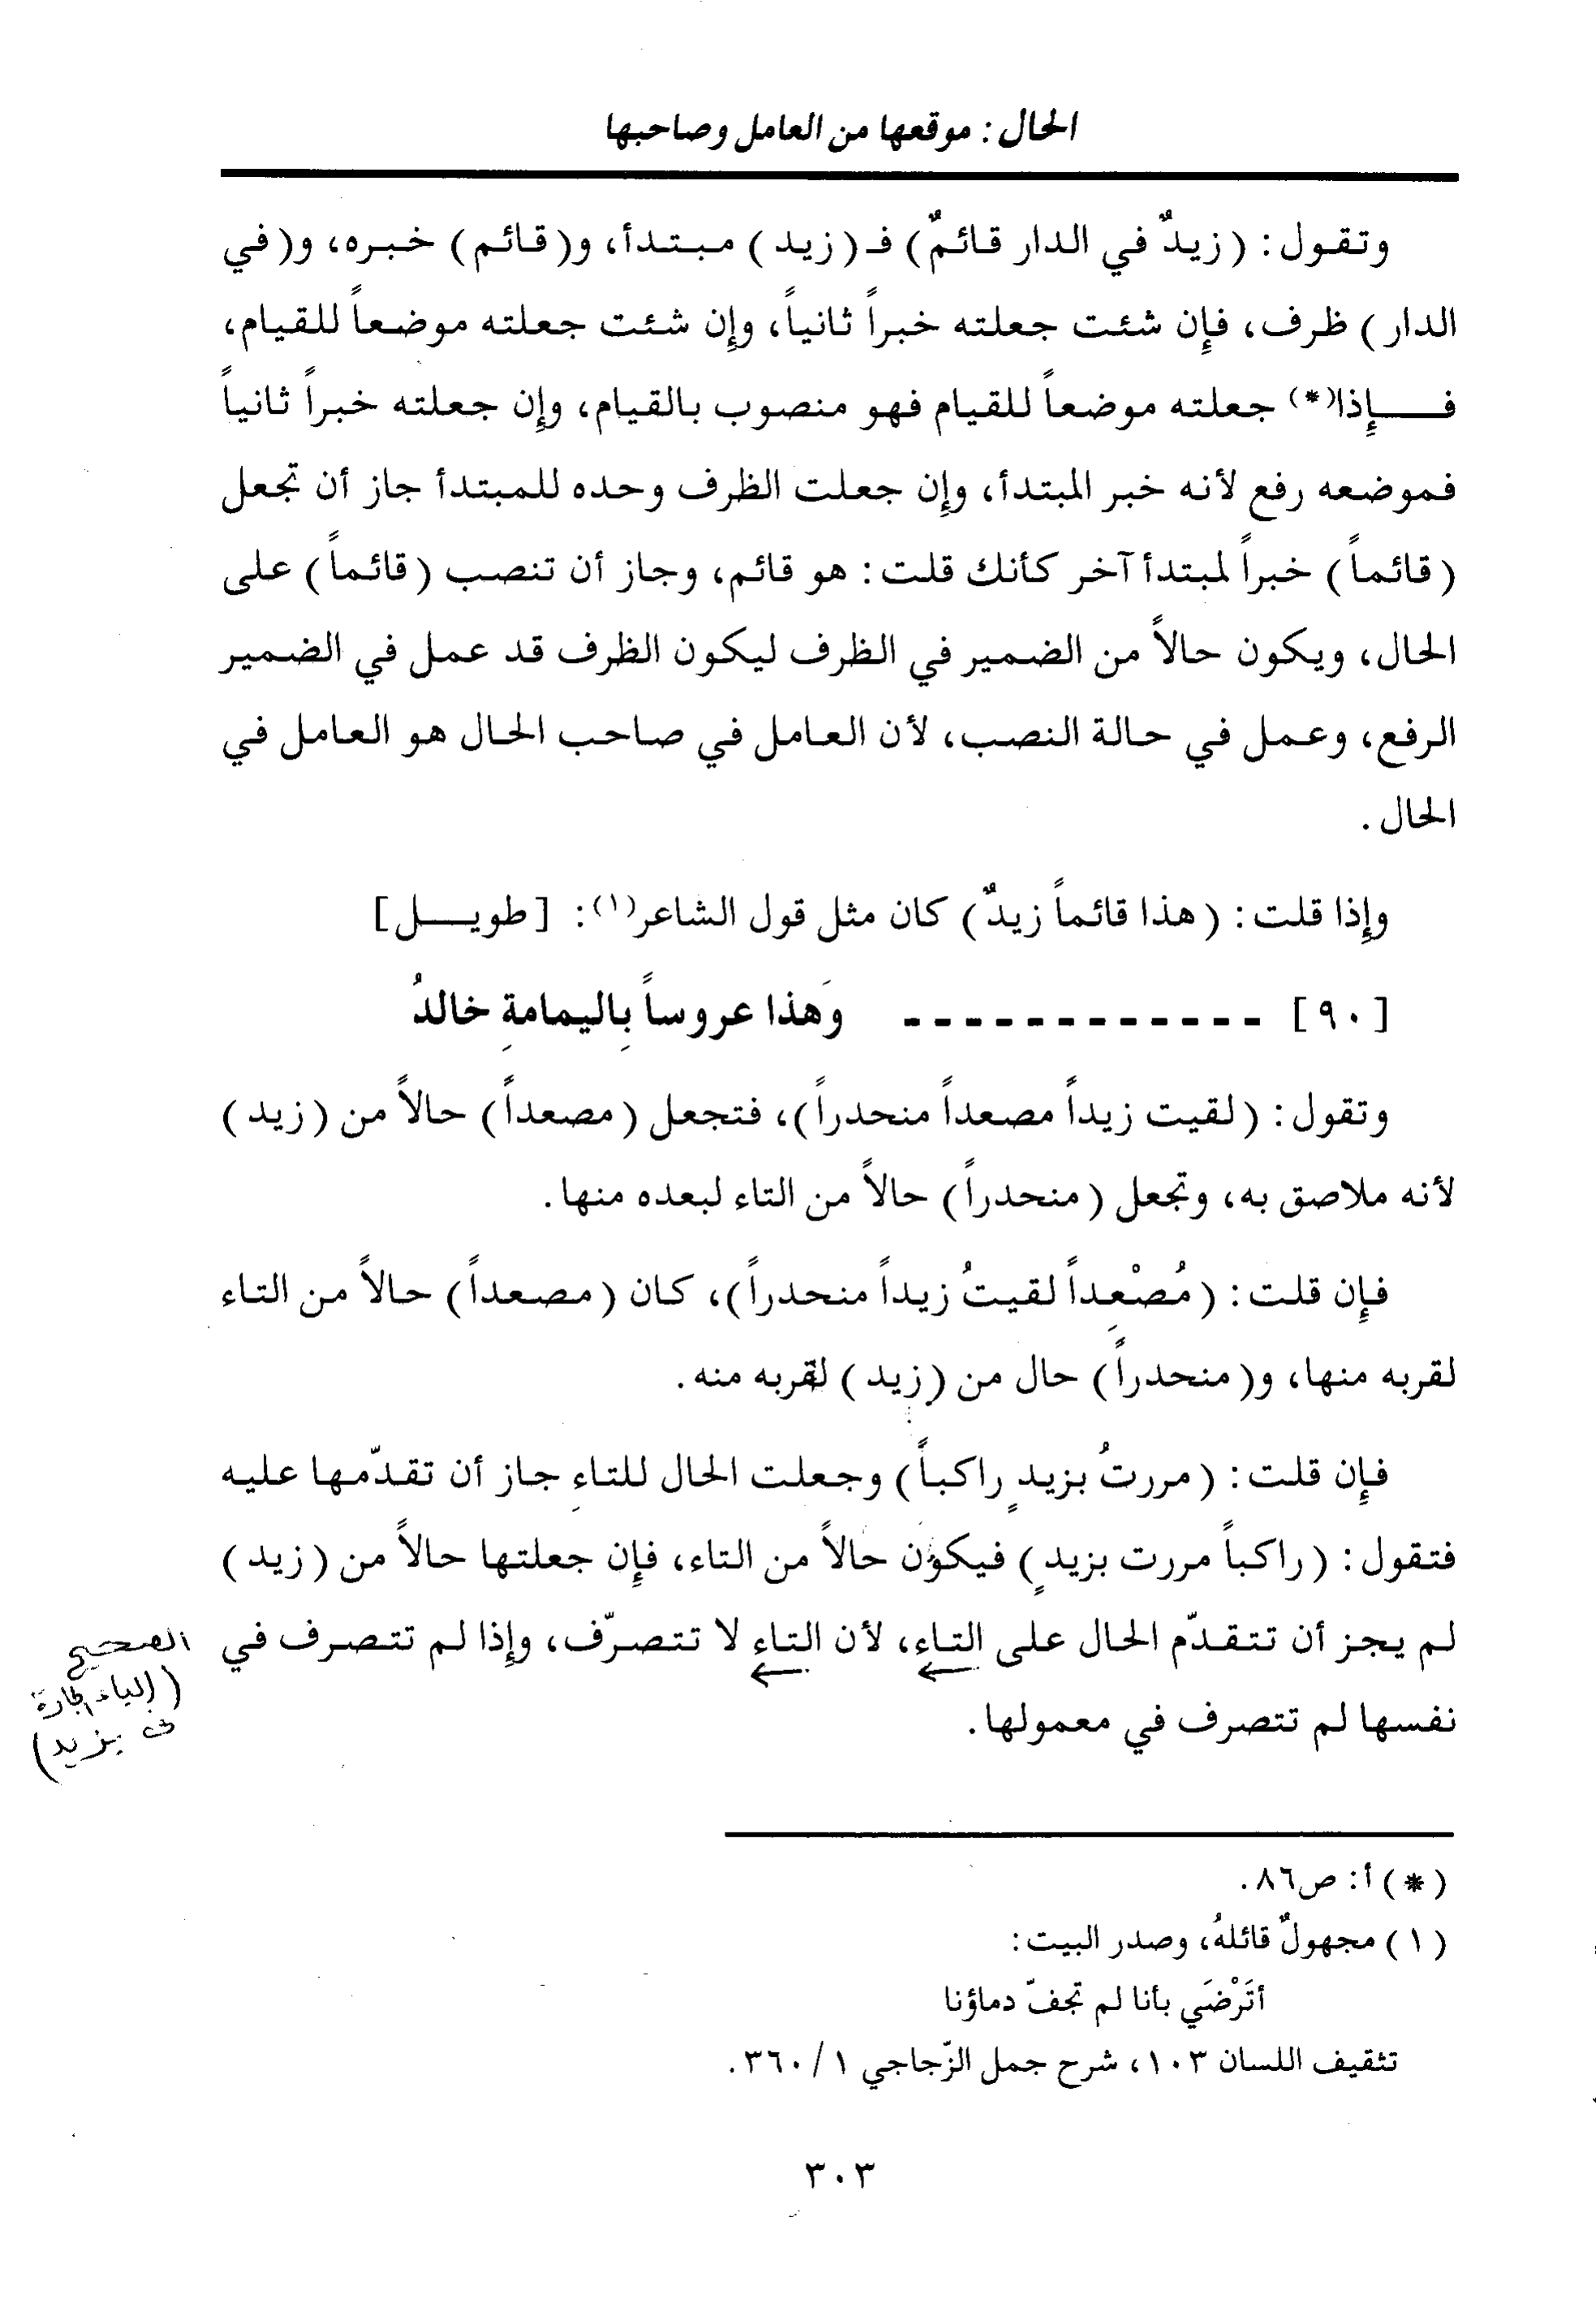 الحال : موقعها من العامل وصاحبها
وتقول : ( زيدٌ في الدار قائمٌ ) فـ ( زيد ) مبتدأ، و( قائم ) خبره، و( في
الدار ) ظرف، فإن شئت جعلته خبراً ثانياً، وإن شئت جعلته موضعاً للقيام،
فإذا(*) جعلته موضعاً للقيام فهو منصوب بالقيام، وإن جعلته خبراً ثانياً
فموضعه رفع لأنه خبر المبتدأ، وإن جعلت الظرف وحده للمبتدأ جاز أن تجعل
( قائماً ) خبراً لمبتدأ آخر كأنك قلت : هو قائم، وجاز أن تنصب ( قائماً ) على
الحال، ويكون حالاً من الضمير في الظرف ليكون الظرف قد عمل في الضمير
الرفع، وعمل في حالة النصب، لأن العامل في صاحب الحال هو العامل في
الحال .
وإذا قلت : ( هذا قائماً زيدٌ ) كان مثل قول الشاعر(١) : [ طويـــل ]
[ ٩٠ ] ------------ وَهذا عروساً بِاليمامةِ خالدُ
وتقول : ( لقيت زيداً مصعداً منحدراً )، فتجعل ( مصعداً ) حالاً من ( زيد )
لأنه ملاصق به، وتجعل ( منحدراً ) حالاً من التاء لبعده منها.
فإن قلت : ( مُصْعِداً لقيتُ زيداً منحدراً )، كان ( مصعداً ) حالاً من التاء
لقربه منها، و( منحدراً ) حال من ( زيد ) لقربه منه.
فإن قلت : ( مررتُ بزيدٍ راكباً ) وجعلت الحال للتاءِ جاز أن تقدّمها عليه
فتقول : ( راكباً مررت بزيدٍ ) فيكون حالاً من التاء، فإن جعلتها حالاً من ( زيد )
لم يجز أن تتقدّم الحال على التاءِ، لأن التاءِ لا تتصرّف، وإذا لم تتصرف في
نفسها لم تتصرف في معمولها.
الصحيح
(الباء الجارة
في بزيد)
( * ) أ : ص٨٦.
( ١ ) مجهولٌ قائلهُ، وصدر البيت :
أتَرْضَي بأنا لم تجفّ دماؤنا
تثقيف اللسان ١٠٣، شرح جمل الزّجاجي ١/٣٦٠.
٣٠٣